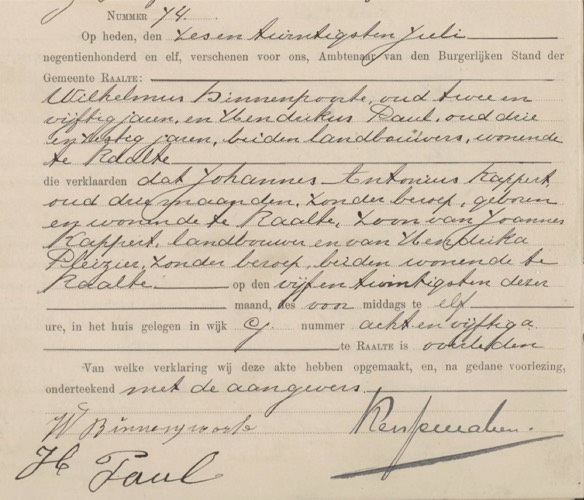 NUMMER 74.
Op heden, den zes en twintigsten Juli
negentienhonderd en elf, verschenen voor ons, Ambtenaar van den Burgerlijken Stand der
Gemeente RAALTE:
Wilhelmus Binnenpoorte, oud twee en
vijftig jaren, en Hendrikus Paul, oud drie
en zestig jaren, beiden landbouwers, wonende
te Raalte
die verklaarden dat Johannes Antonius Kappert,
oud drie maanden, zonder beroep, geboren
en wonende te Raalte, zoon van Joannes
Kappert, landbouwer en van Hendrika
Pleizier, zonder beroep, beiden wonende te
Raalte op den vijf en twintigsten dezer
maand, des voor middags te elf
ure, in het huis gelegen in wijk nummer acht en vijftig a
te RAALTE is overleden
Van welke verklaring wij deze akte hebben opgemaakt, en, na gedane voorlezing,
onderteekend met de aangevers.
W Binnenpoorte
H Paul